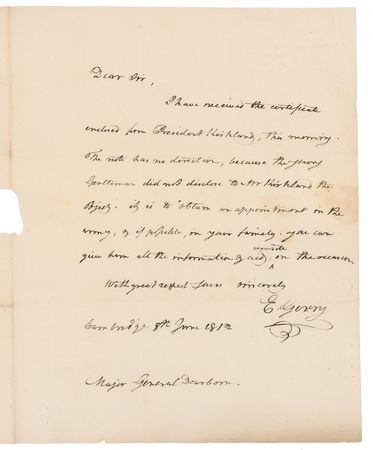 Dear Sir,
I have received the certificate
enclosed from President Kirkland, this morning.
The note has no direction, because the young
Gentleman did not disclose to Mr Kirkland the
Object. it is to obtain an appointment in the
army, or if possible, in your family. you can
give him all the information & aid,
requisite
on the occasion
With great respect yours sincerely
E Gerry
Cambridge 8th June 1812
Major General Dearborn.